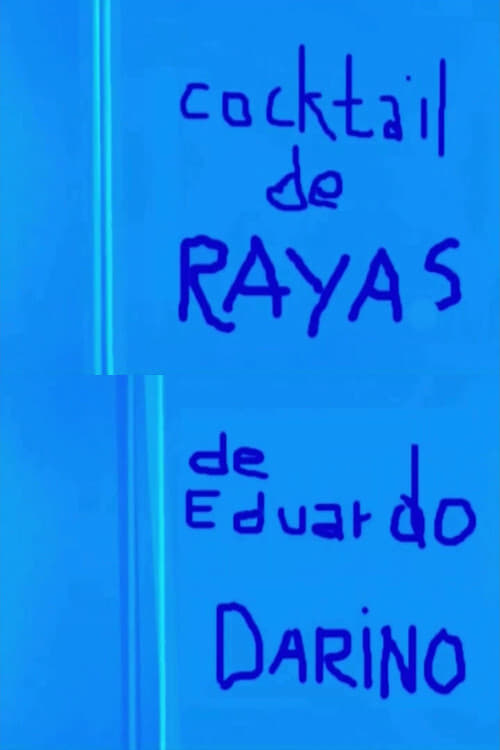 cocktail
de
RAYAS
de
Eduardo
DARiNO